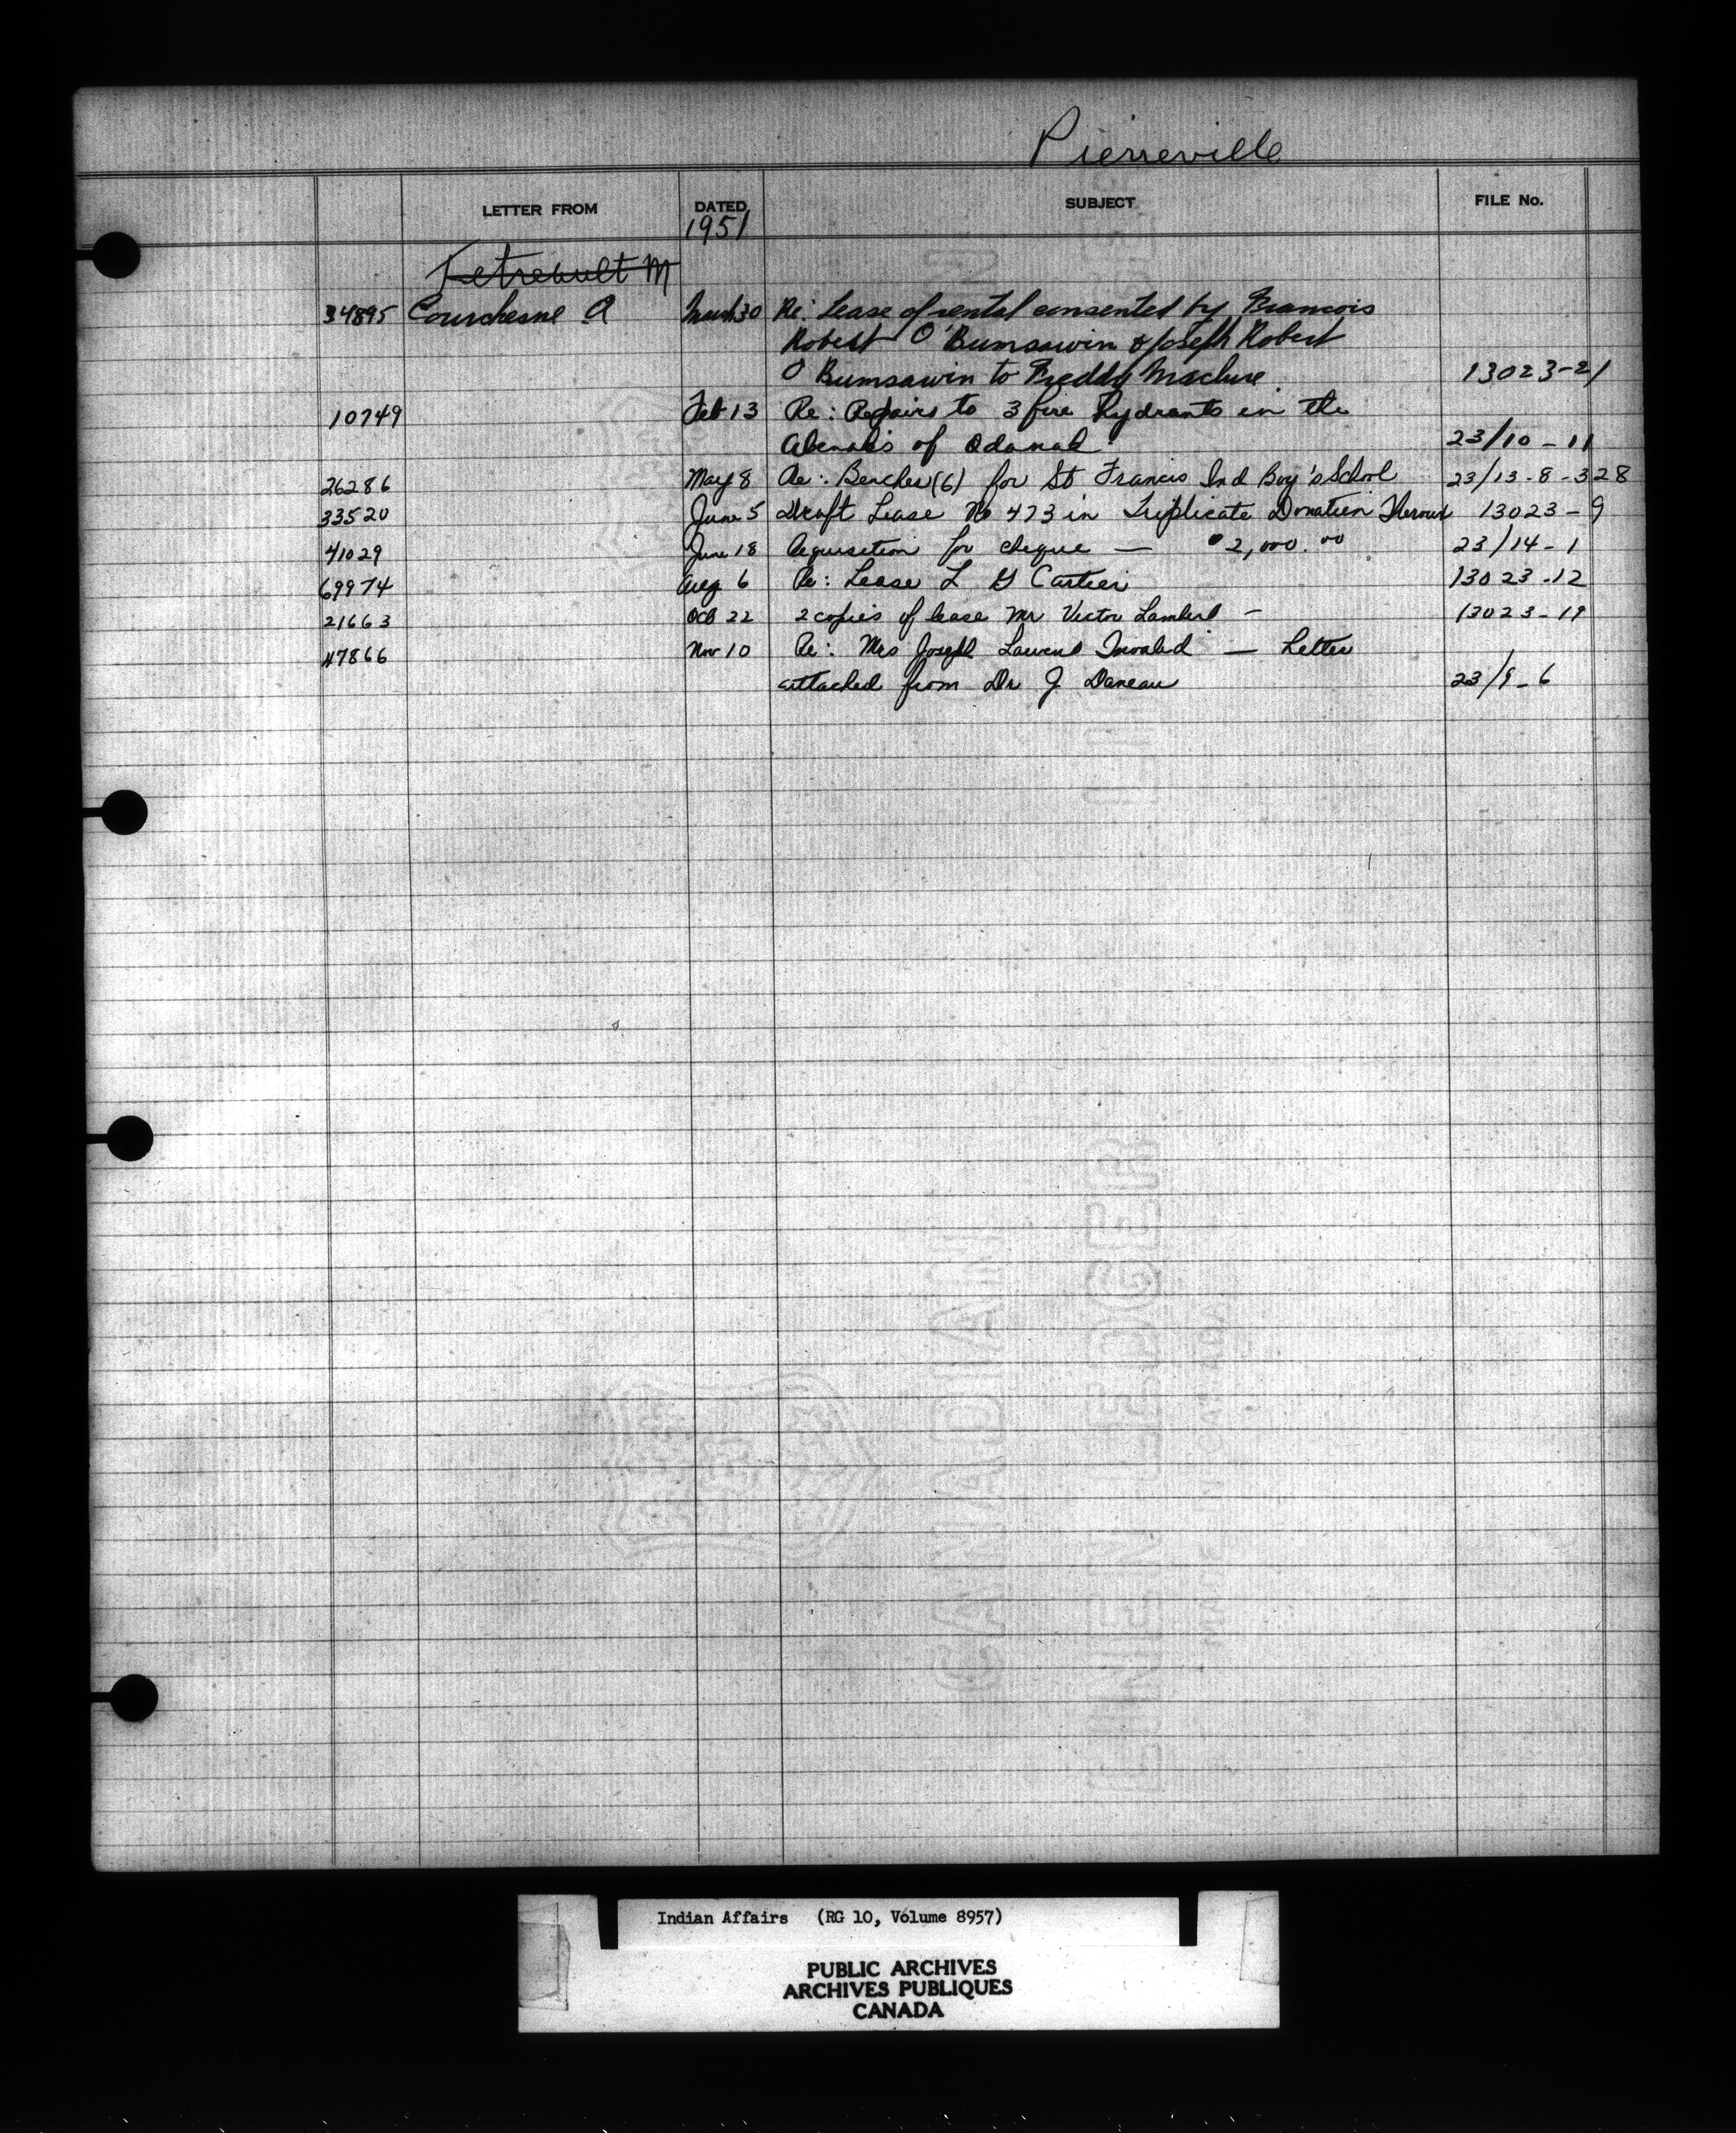 Pierreville
LETTER FROM DATED SUBJECT FILE No.
1951
Tetreault M
34895 Courchesne A March 30 Re: Lease of rental consented by Francois
Robert O'Bumsawin & Joseph Robert
O Bumsawin to Freddy Maclure. 13023-21
10749 Feb 13 Re: Repairs to 3 fire hydrants in the
Abenakis of Odanak 23/10-11
26286 May 8 Re: Benches (6) for St Francis Ind Boy's School 23/13-8-328
33520 June 5 Draft Lease No 473 in Triplicate Donatien Theroux 13023-9
41029 June 18 Requisition for cheque — $2,000.00 23/14-1
69974 Aug 6 Re: Lease L G Cartier 13023-12
21663 Oct 22 2 copies of lease Mr Victor Lambert - 13023-19
47866 Nov 10 Re: Mrs Joseph Laurent Invalid — Letter
attached from Dr J Daneau 23/9-6
CANADIAN
LINEN LEDGER
MADE IN CANADA
Indian Affairs (RG 10, Volume 8957)
PUBLIC ARCHIVES
ARCHIVES PUBLIQUES
CANADA